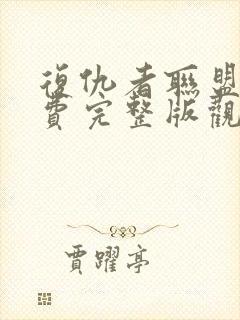 復仇者聯盟
費完整版觀
賈躍亭